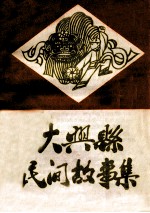 大興縣
民间故事集